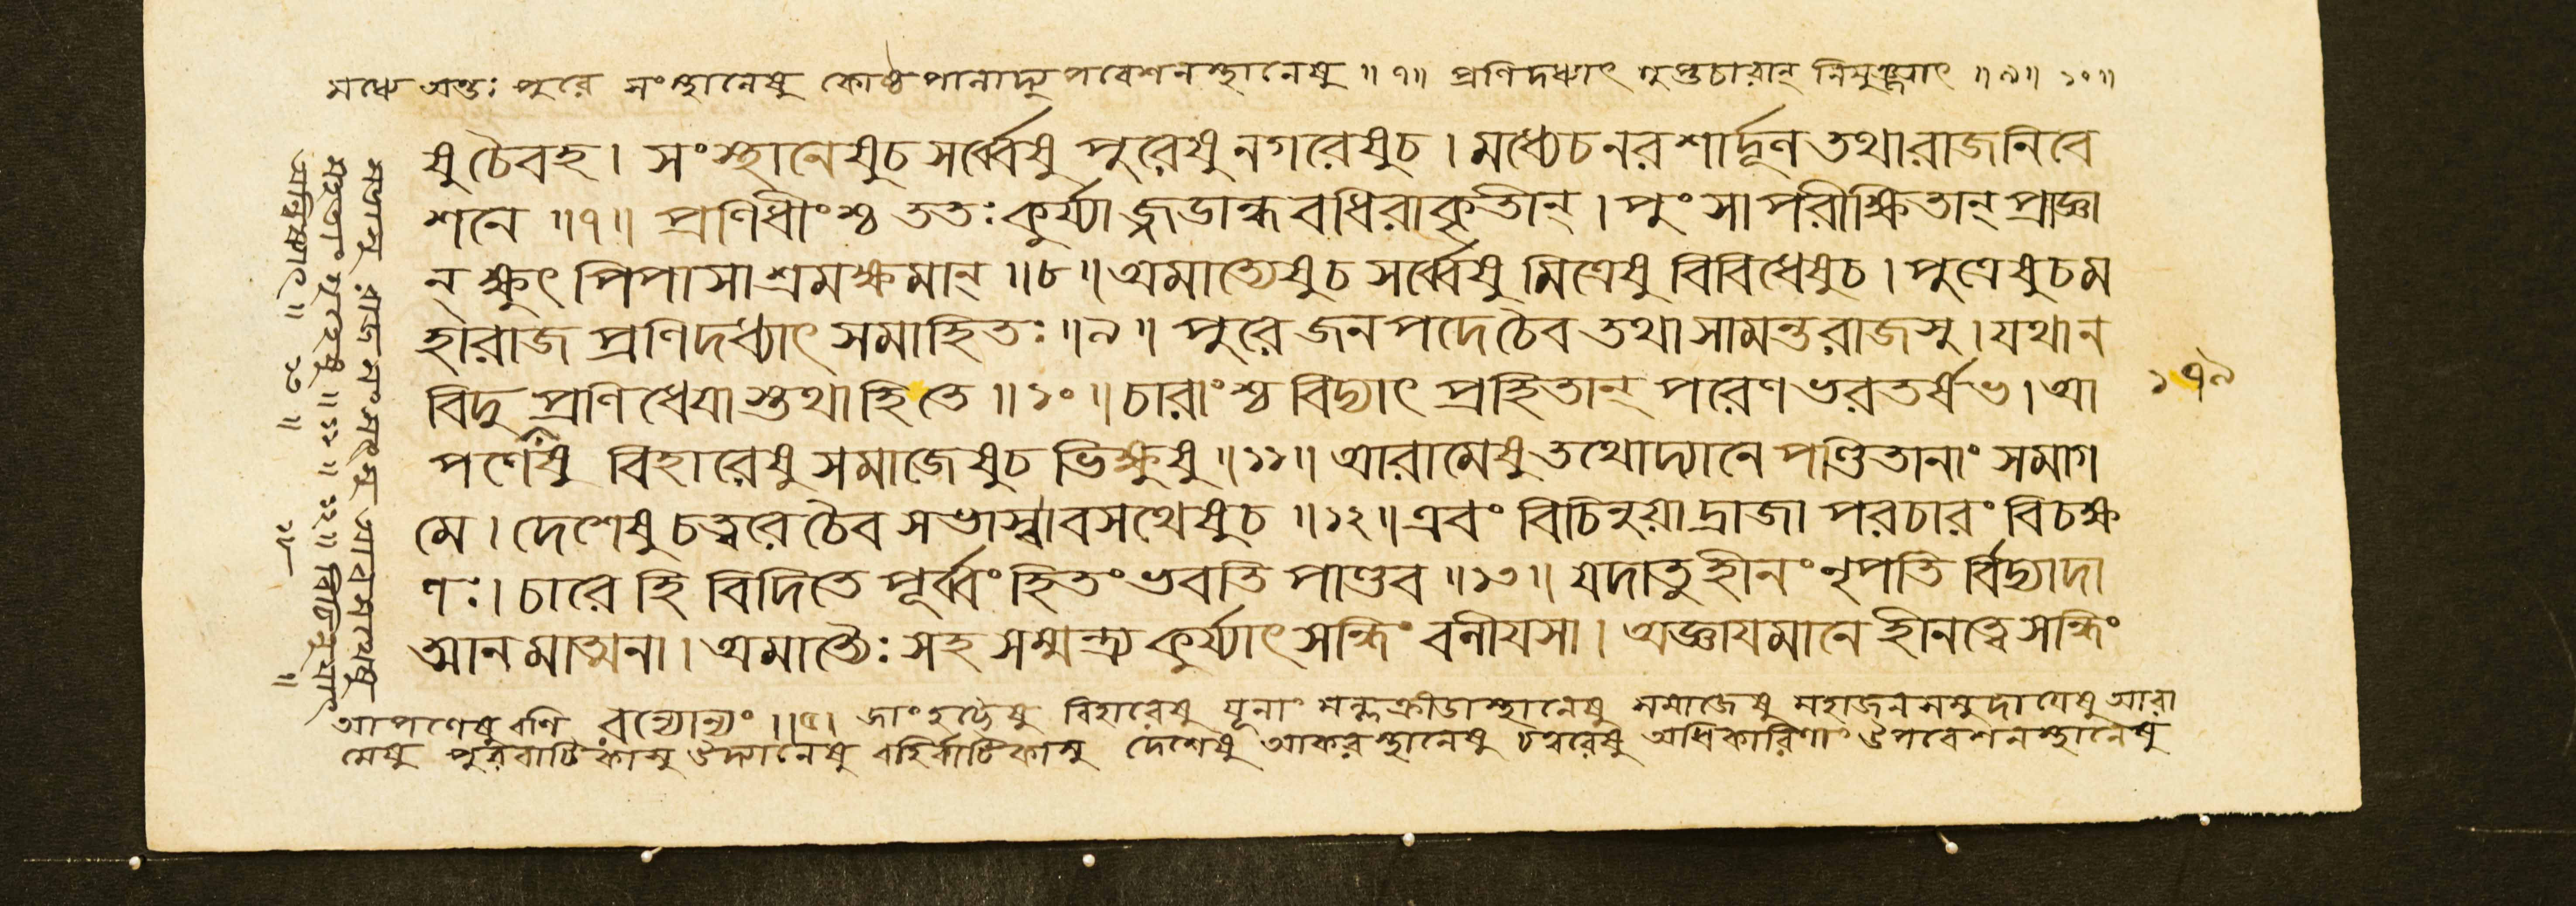 মধ্যে অন্তঃ পুরে সংস্থানেষু কোষ্ঠপানাদ্যুপবেশনস্থানেষু ॥৭॥ প্রণিদধ্যাৎ গুপ্তচারান্ নিযুঞ্জ্যাৎ ॥৯॥ ১০॥
ষু চৈবহ। সংস্থানেষুচ সর্ব্বেষু পুরেষু নগরেষুচ। মধ্যেচ নরশার্দূল তথা রাজনিবে
শনে ॥৭॥ প্রণিধীংশ্চ ততঃ কুর্য্যাজ্জডান্ধবধিরাকৃতীন্। পুংসা পরীক্ষিতান্ প্রাজ্ঞা
ন ক্ষুৎ পিপাসা শ্রমক্ষমান্ ॥৮॥ অমাত্যেষুচ সর্ব্বেষু মিত্রেষু বিবিধেষুচ। পুত্রেষুচ ম
হারাজ প্রণিদধ্যাৎ সমাহিতঃ ॥৯॥ পুরে জনপদে চৈব তথা সামন্তরাজসু। যথা ন
বিদু প্রণিধেযাস্তথাহি তে ॥১০॥ চারাংশ্চ বিদ্যাৎ প্রহিতান্ পরেণ ভরতর্ষভ। আ
পণেষু বিহারেষু সমাজেষুচ ভিক্ষুষু ॥১১॥ আরামেষু তথোদ্যানে পণ্ডিতানাং সমাগ
মে। দেশেষু চত্বরে চৈব সভাস্বাবসথেষুচ ॥১২॥ এবং বিচিনুয়াদ্রাজা পরচারং বিচক্ষ
ণঃ। চারে হি বিদিতে পূর্ব্বং হিতং ভবতি পাণ্ডব ॥১৩॥ যদাতু হীনং নৃপতি র্বিদ্যাদা
আনমাত্মনা। অমাত্যৈঃ সহ সম্মন্ত্র্য কুর্য্যাৎ সন্ধিং বলীযসা। অজ্ঞাযমানে হীনত্বে সন্ধিং
১৭৯
আপণেষু বণি ॥৫। বিহারেষু যূনাং মল্লক্রীডাস্থানেষু সমাজেষু মহাজনসমুদাযেষু আরা
মেষু পুরবাটিকাসু উদ্যানেষু বহির্বাটিকাসু দেশেষু আকরস্থানেষু চত্বরেষু অধিকারিণাং উপবেশনস্থানেষু
সভাসু রাজসংসৎসু আবসথেষু
মহতাং গৃহেষু ॥১১॥ ১২॥ বিচিনুযাৎ
অন্বিষ্যেৎ॥ ১৩॥ ১৪॥